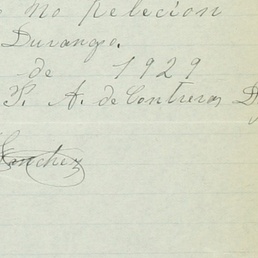 no pelecion
Durango.
de 1929
P. A. de Contreras D
Sanchez